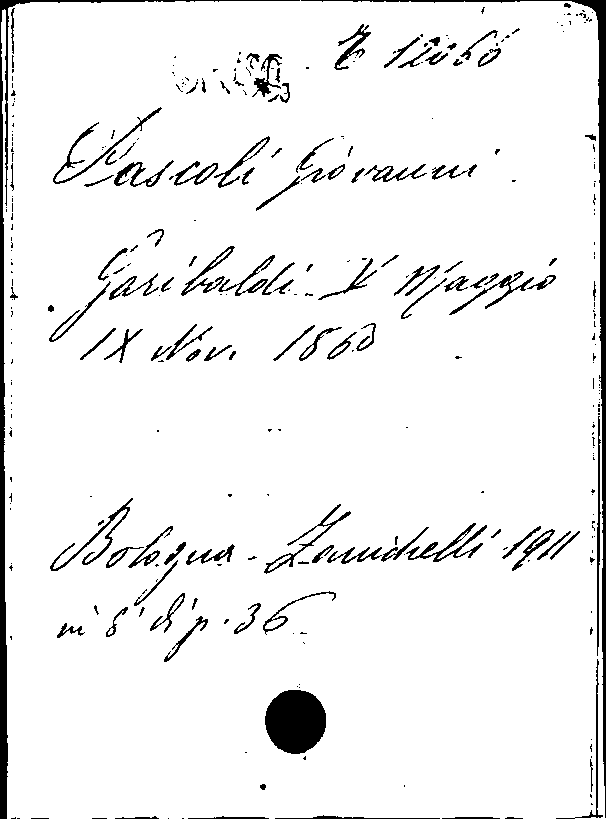 E 12060
Pascoli Giovanni
Garibaldi - V Maggio
IX Nov. 1860
Bologna - Zanichelli 1911
in 8° di p. 36